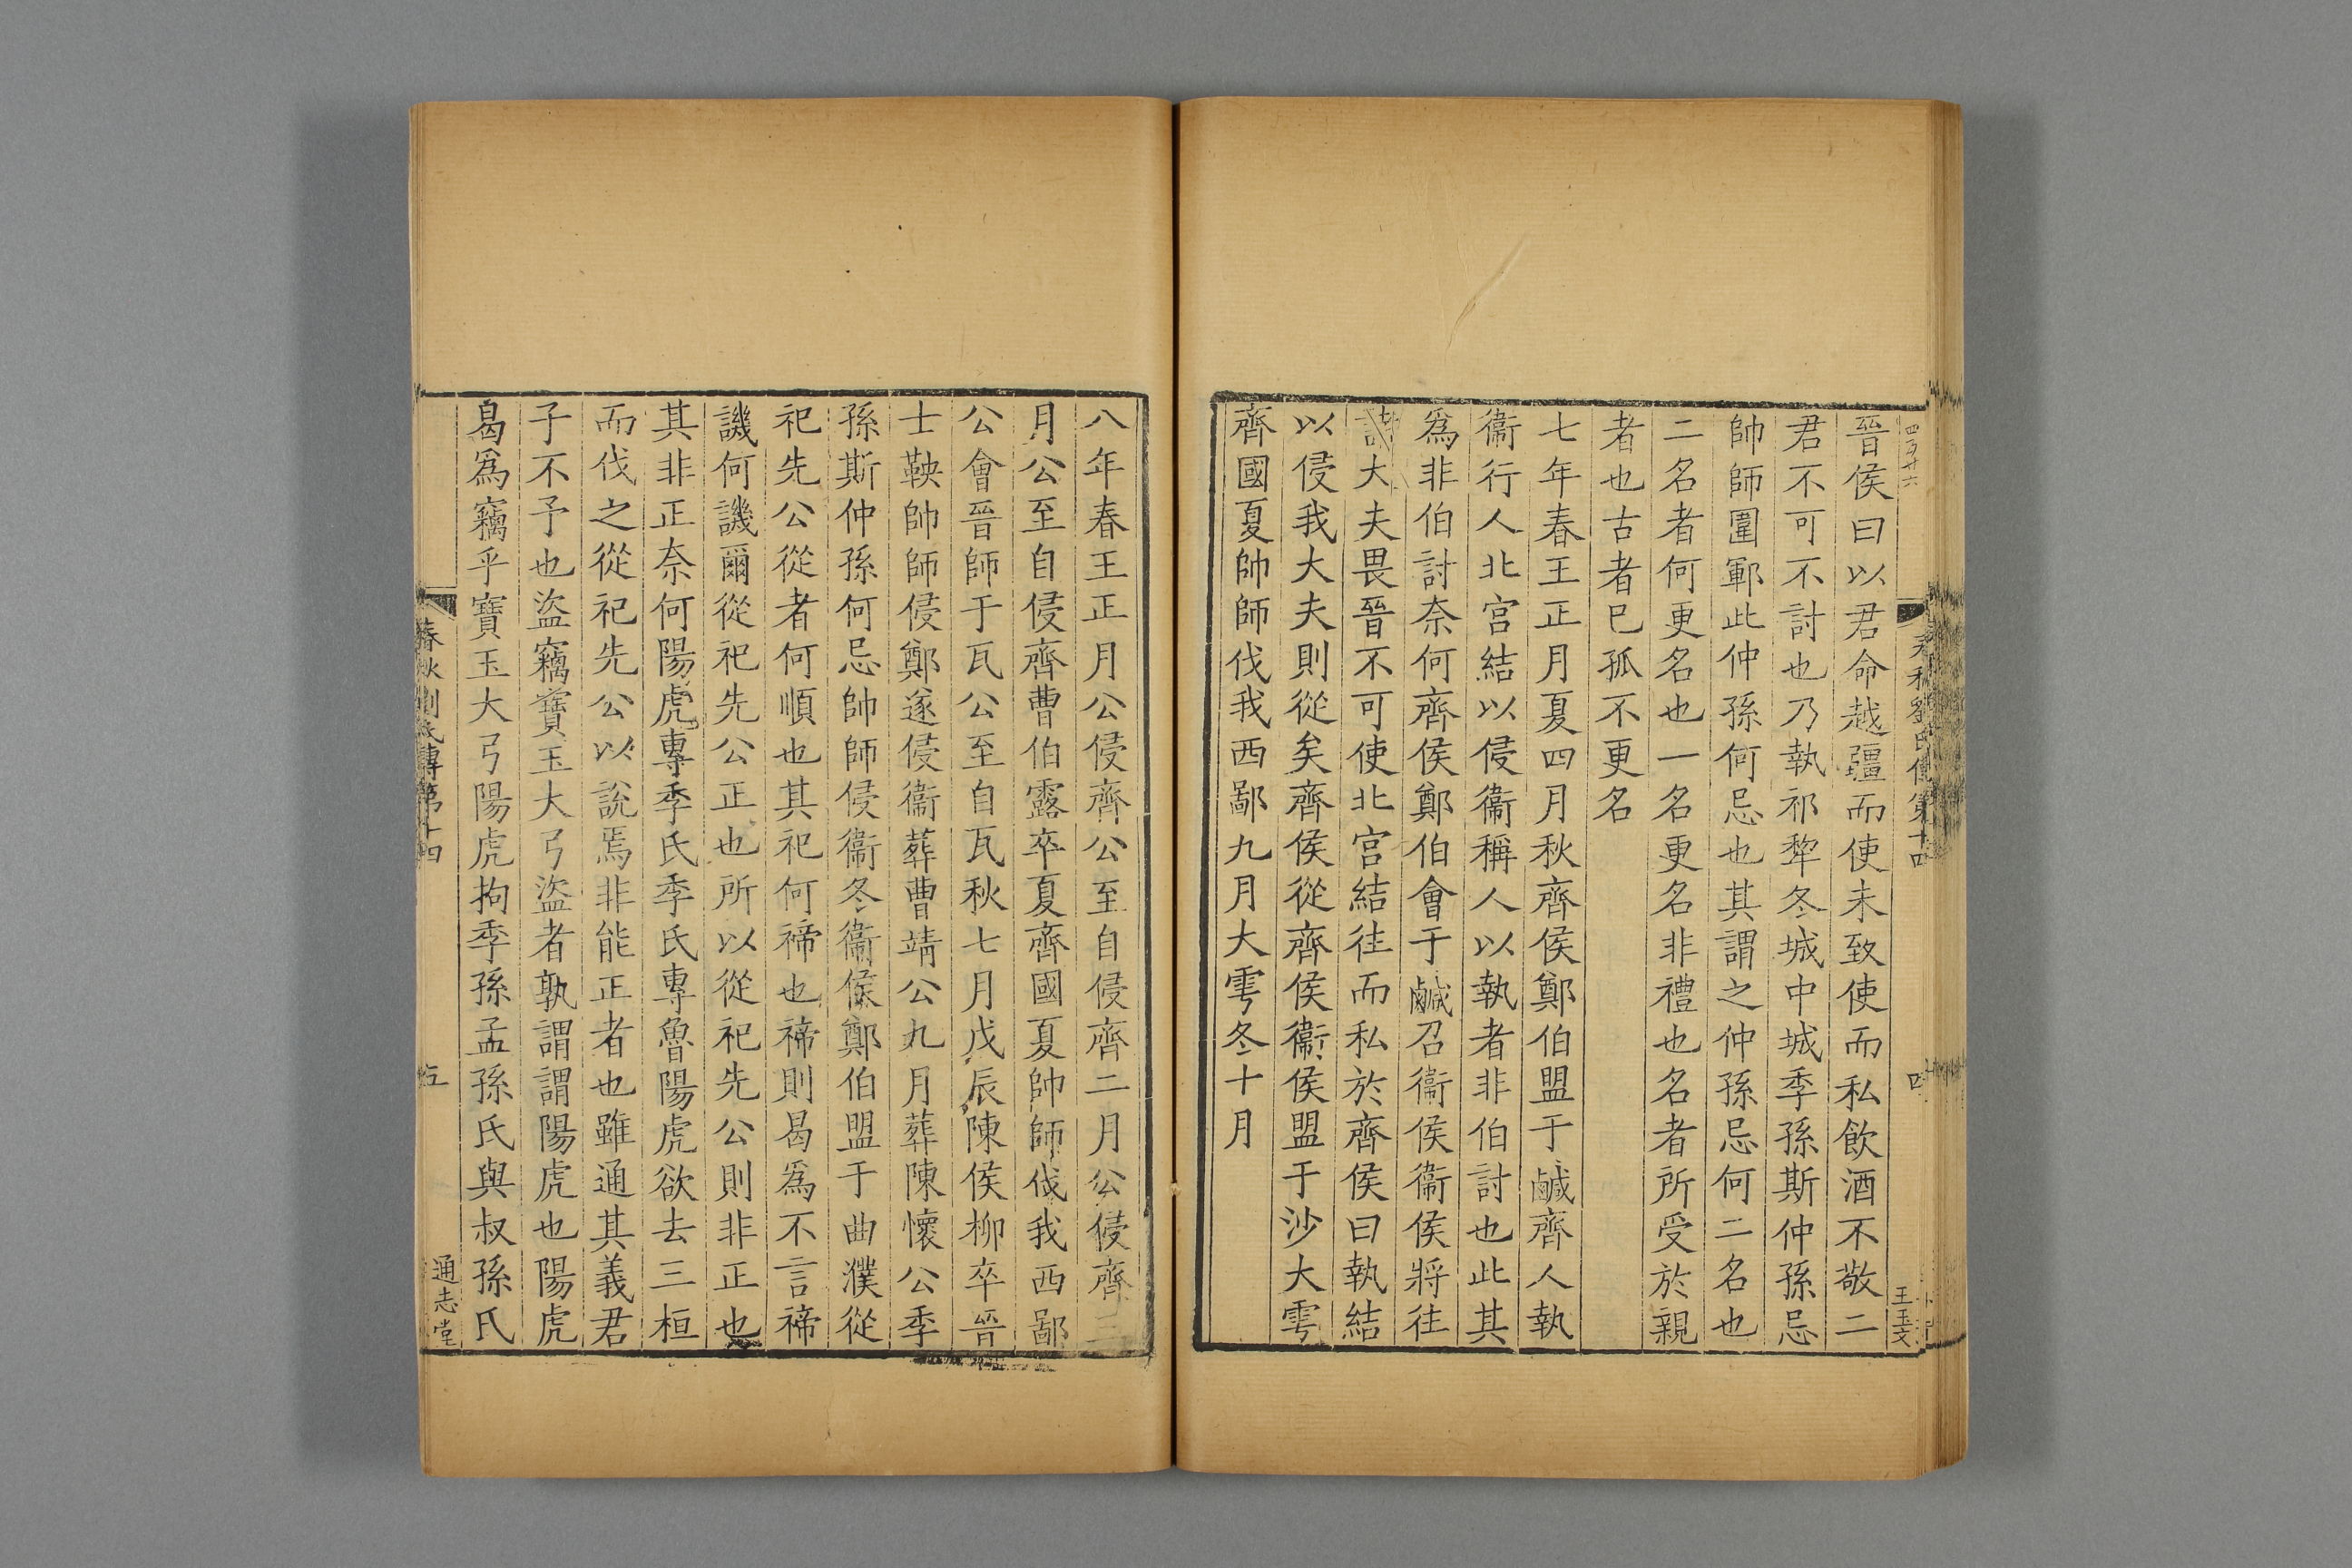 四百廿六
春秋劉氏傳第十四
四
王玉文
晉侯曰以君命越疆而使未致使而私飲酒不敬二
君不可不討也乃執祁犂冬城中城季孫斯仲孫忌
帥師圍鄆此仲孫何忌也其謂之仲孫忌何二名也
二名者何更名也一名更名非禮也名者所受於親
者也古者已孤不更名
七年春王正月夏四月秋齊侯鄭伯盟于鹹齊人執
衞行人北宮結以侵衞稱人以執者非伯討也此其
爲非伯討奈何齊侯鄭伯會于鹹召衞侯衞侯將往
諸大夫畏晉不可使北宮結往而私於齊侯曰執結
以侵我大夫則從矣齊侯從齊侯衞侯盟于沙大雩
齊國夏帥師伐我西鄙九月大雩冬十月
八年春王正月公侵齊公至自侵齊二月公侵齊三
月公至自侵齊曹伯露卒夏齊國夏帥師伐我西鄙
公會晉師于瓦公至自瓦秋七月戊辰陳侯柳卒晉
士鞅帥師侵鄭遂侵衞葬曹靖公九月葬陳懷公季
孫斯仲孫何忌帥師侵衞冬衞侯鄭伯盟于曲濮從
祀先公從者何順也其祀何禘也禘則曷爲不言禘
譏何譏爾從祀先公正也所以從祀先公則非正也
其非正奈何陽虎專季氏季氏專魯陽虎欲去三桓
而伐之從祀先公以說焉非能正者也雖通其義君
子不予也盜竊寶玉大弓盜者孰謂謂陽虎也陽虎
曷爲竊乎寶玉大弓陽虎拘季孫孟孫氏與叔孫氏
春秋劉氏傳第十四
五
通志堂